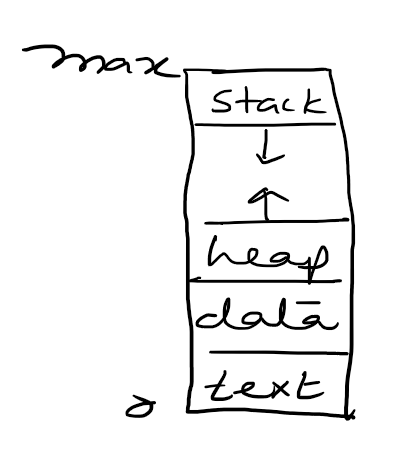 max
stack
heap
data
text
0